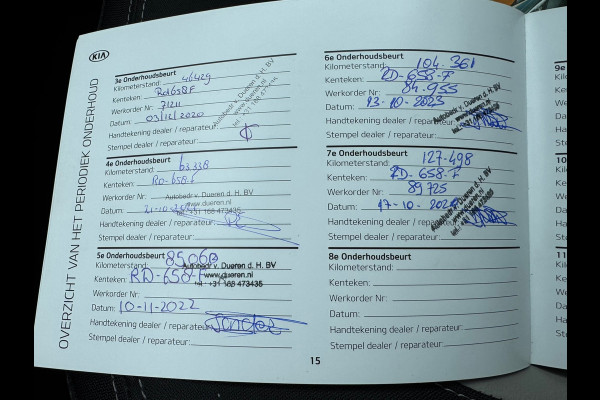 KIA
OVERZICHT VAN HET PERIODIEK ONDERHOUD
3e Onderhoudsbeurt
Kilometerstand: 46429
Kenteken: RD658F
Werkorder Nr: 7211
Datum: 03/12/2020
Handtekening dealer / reparateur:
Stempel dealer / reparateur:
Autobedr v. Dueren d. H. BV
www.dueren.nl
4e Onderhoudsbeurt
Kilometerstand: 63.338
Kenteken: RD-658-F
Werkorder Nr:
Datum:
Handtekening dealer / reparateur:
Stempel dealer / reparateur:
Autobedr v. Dueren d. H. BV
www.dueren.nl
tel.: +31 168 473435
5e Onderhoudsbeurt
Kilometerstand:
Kenteken: RD-658-F
Werkorder Nr:
Datum: 10-11-2022
Handtekening dealer / reparateur:
Stempel dealer / reparateur:
Autobedr v. Dueren d. H. BV
www.dueren.nl
tel.: +31 168 473435
6e Onderhoudsbeurt
Kilometerstand: 104.361
Kenteken: RD-658-F
Werkorder Nr: 84.955
Datum: 23-10-2023
Handtekening dealer / reparateur:
Stempel dealer / reparateur:
7e Onderhoudsbeurt
Kilometerstand: 127-498
Kenteken: RD-658-F
Werkorder Nr: 89725
Datum: 17-10-2024
Handtekening dealer / reparateur:
Stempel dealer / reparateur:
8e Onderhoudsbeurt
Kilometerstand:
Kenteken:
Werkorder Nr:
Datum:
Handtekening dealer / reparateur:
Stempel dealer / reparateur:
15
9e
Kilo
Kent
Werk
Datu
Hand
Stem
10
Kilo
Ken
Wer
Dat
Han
Ste
11
Kil
Ke
We
Da
Ha
St